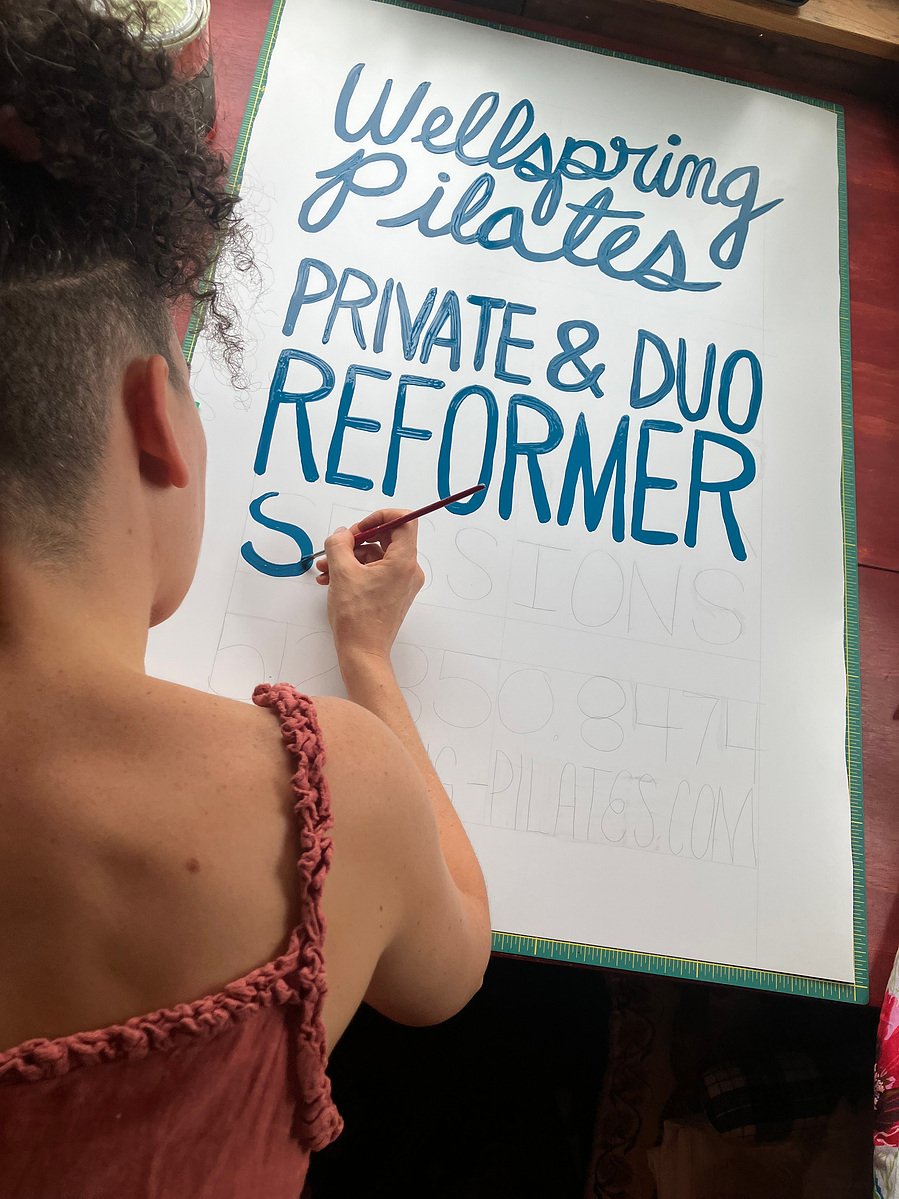 Wellspring
Pilates
PRIVATE & DUO
REFORMER
SESSIONS
512 850.8474
G-PILATES.COM